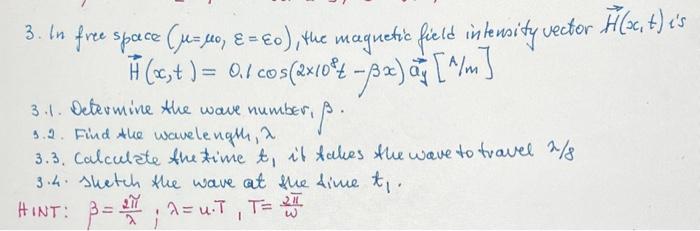 3. In free space (μ=μ0, ε=ε0), the magnetic field intensity vector H⃗(x,t) is
H⃗(x,t) = 0.1 cos(2×10⁸t - βx) a⃗y [A/m]
3.1. Determine the wave number, β.
3.2. Find the wavelength, λ
3.3. Calculate the time t₁ it takes the wave to travel λ/8
3.4. Sketch the wave at the time t₁.
HINT: β = 2π/λ ; λ = u·T , T = 2π/ω